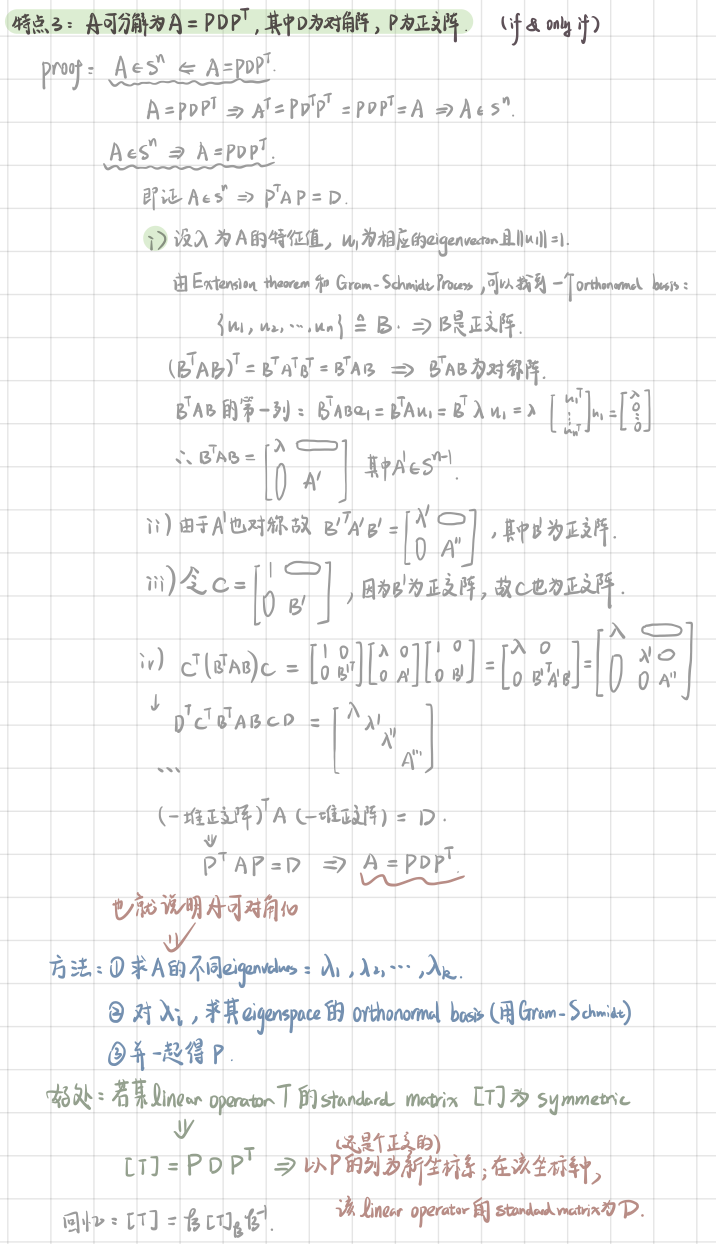 特点3：A可分解为A = PDPᵀ, 其中D为对角阵, P为正交阵. (if & only if)
proof: A∈Sⁿ ⇐ A=PDPᵀ.
A=PDPᵀ ⇒ Aᵀ=PDᵀPᵀ = PDPᵀ=A ⇒ A∈Sⁿ.
A∈Sⁿ ⇒ A=PDPᵀ.
即证 A∈Sⁿ ⇒ PᵀAP=D.
i) 设λ为A的特征值, u₁为相应的eigenvector且||u₁||=1.
由Extension theorem和Gram-Schmidt Process, 可以找到一个orthonormal basis:
{u₁, u₂, ⋯, uₙ} ≜ B. ⇒ B是正交阵.
(BᵀAB)ᵀ = BᵀAᵀBᵀ = BᵀAB ⇒ BᵀAB为对称阵.
BᵀAB的第一列: BᵀABe₁ = BᵀAu₁ = Bᵀλu₁ = λ [u₁ᵀ ⋮ uₙᵀ]u₁ = [λ 0 ⋮ 0]
∴ BᵀAB = [λ 0; 0 A'] 其中A'∈Sⁿ⁻¹.
ii) 由于A'也对称故 B'ᵀA'B' = [λ' 0; 0 A''], 其中B'为正交阵.
iii) 令C = [1 0; 0 B'], 因为B'为正交阵, 故C也为正交阵.
iv) Cᵀ(BᵀAB)C = [1 0; 0 B'ᵀ][λ 0; 0 A'][1 0; 0 B'] = [λ 0; 0 B'ᵀA'B'] = [λ 0; 0 λ' 0; 0 A'']
↓ DᵀCᵀBᵀABCD = [λ λ' λ'' A''']
⋯
(一堆正交阵)ᵀA(一堆正交阵) = D.
⇓
PᵀAP=D ⇒ A=PDPᵀ.
也就说明A可对角化
⇓
方法: ① 求A的不同eigenvalues: λ₁, λ₂, ⋯, λₖ.
② 对λᵢ, 求其eigenspace的 orthonormal basis (用Gram-Schmidt)
③ 并一起得P.
好处: 若某linear operator T的standard matrix [T]为symmetric
⇓
(还是个正交的)
[T] = PDPᵀ ⇒ 以P的列为新坐标系; 在该坐标系中,
该linear operator的standard matrix为D.
回忆: [T] = B[T]_B B⁻¹.